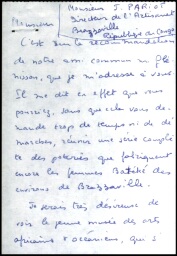 Monsieur J. PARIOT
Directeur de l'Artisanat
Brazzaville
République du Congo
Monsieur
C'est sur la recommandation
de notre ami commun Plé
nisson, que je m'adresse à vous
Il me dit en effet que vous
pourriez, sans que cela vous de-
mande trop de temps ni de dé
marches, réunir une série complè
te des poteries que fabriquent
encore les femmes Batéké des
environs de Brazzaville.
Je serais très désireuse de
voir le jeune musée des arts
africains & océaniens, qui s'